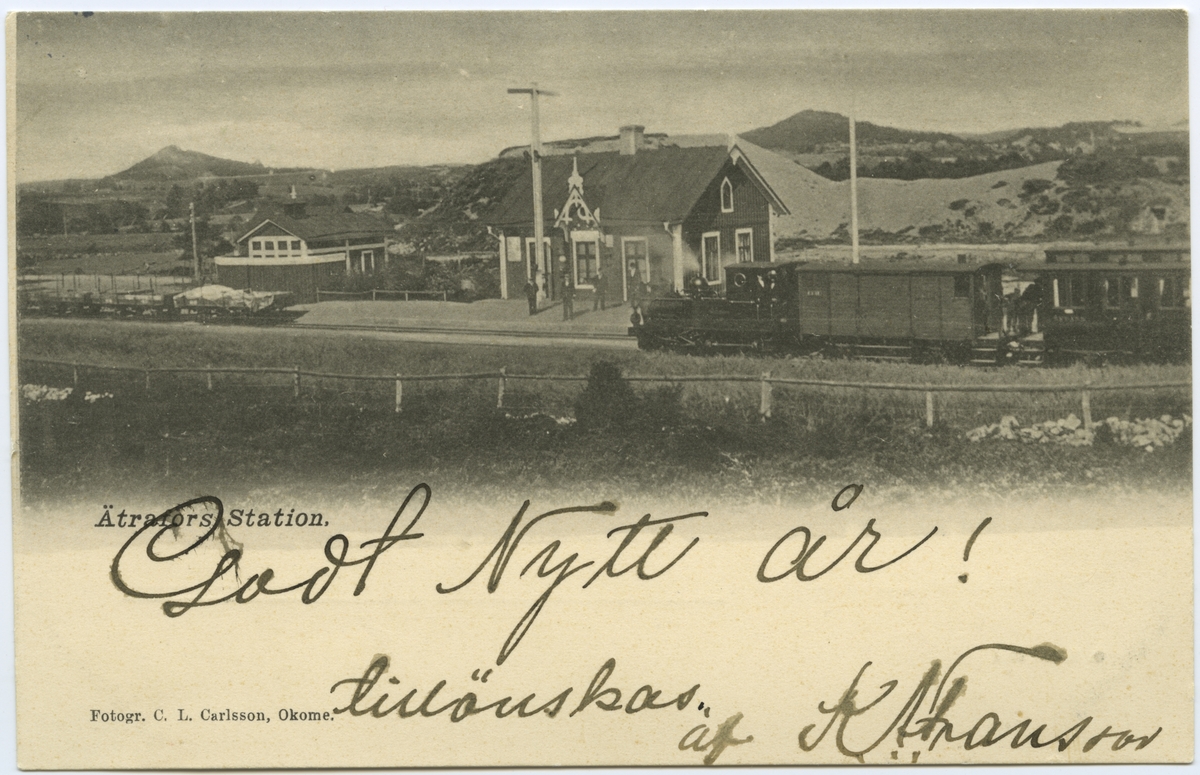 Ätrafors Station.
Godt Nytt år!
tillönskas.
Fotogr. C. L. Carlsson, Okome.
af K